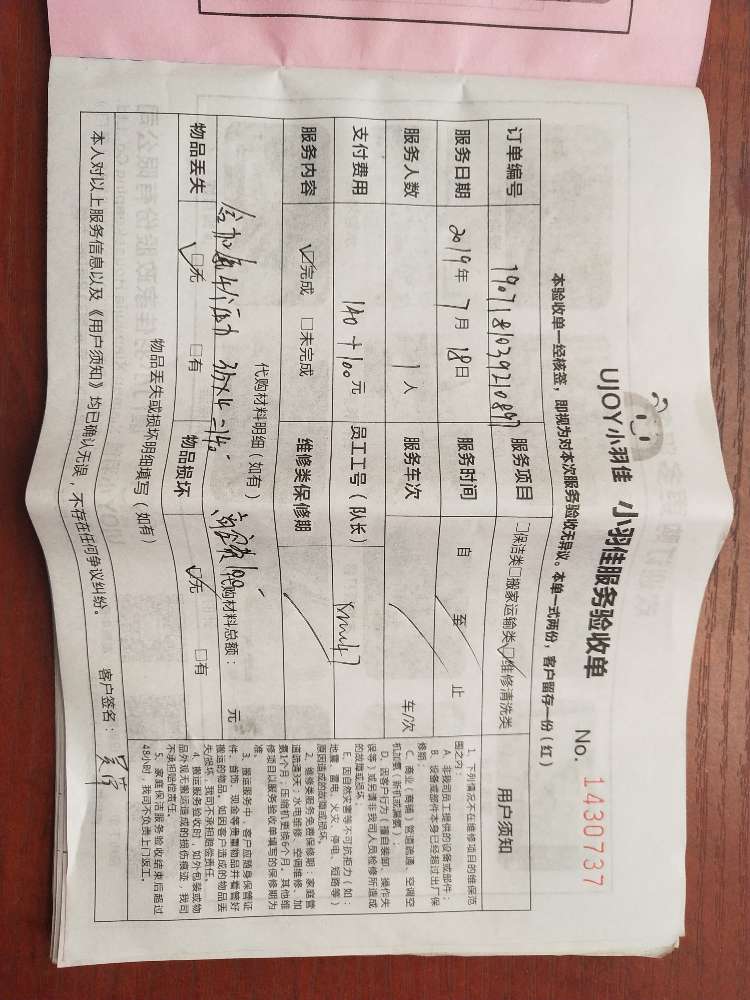 UJOY小羽佳 小羽佳服务验收单
No. 1430737
本验收单一经核签，即视为对本次服务验收无异议。本单一式两份，客户留存一份(红)
订单编号 服务项目 □保洁类□搬家运输类☑维修清洗类
服务日期 2019年7月18日 服务时间 自 至 止
服务人数 1人 服务车次 车/次
支付费用 140+100元 员工工号（队长）
服务内容 ☑完成 □未完成 维修类保修期
代购材料明细（如有）
35×4=140
代购材料总额： 元
物品丢失 ☑无 □有 物品损坏 ☑无 □有
物品丢失或损坏明细填写（如有）
本人对以上服务信息以及《用户须知》均已确认无误，不存在任何争议纠纷。
客户签名：
用户须知
1、下列情况不在维修项目的维保范
围之内：
A、非我司员工提供的设备或部件；
B、设备或部件本身已经超过出厂保
修期；
C、商业（商铺）管道疏通、空调空
机加氨（新机或漏氨）；
D、因客户行为（擅自装卸、操作失
误等）或另请非我司人员检修所造成
的故障或损坏；
E、因自然灾害等不可抗拒力（如：
地震、雷电、火灾、停电、短路等）
原因造成的故障或损坏。
2、维修类服务免费保修期：家庭管
道疏通5天；水电维修、空调维修、加
氨1个月；压缩机更换6个月。其他维
修项目以服务验收单填写的保修期为
准。
3、搬运服务中，客户应随身保管证
件、首饰、现金等贵重物品并看管好
搬运的物品，如因客户造成的物品丢
失/损坏，我司不承担赔偿责任。
4、搬运服务验收时，如外包装或物
品外观无搬运造成的损伤痕迹，我司
不承担赔偿责任。
5、家庭保洁服务验收结束后超过
48小时，我司不负责上门返工。